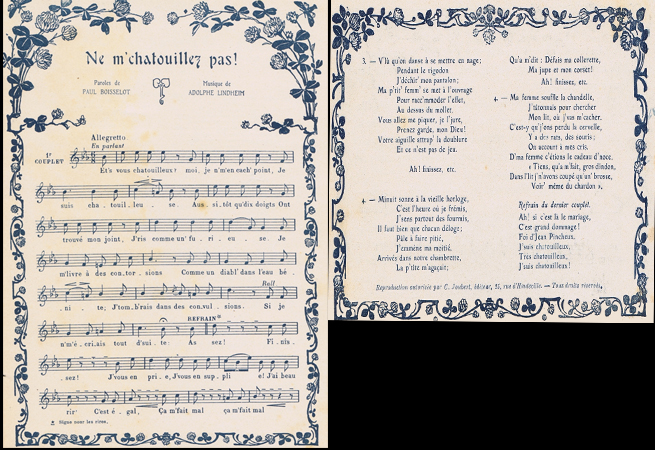 Ne m'chatouillez pas!
Paroles de
PAUL BOISSELOT
Musique de
ADOLPHE LINDHEIM
Allegretto
En parlant
1r
COUPLET
Et's vous chatouilleux? moi, je n'm'en cach' point, Je
suis cha . touil . leu . se. Aus . si . tôt qu'dis doigts Ont
trouvé mon joint, J'ris comme un' fu . ri . eu . se. Je
m'livre à des con . tor . sions Comme un diabl' dans l'eau bé .
Rall
. ni . te; J'tom . b'rais dans des con . vul . sions. Si je
REFRAIN
n'm'é . cri . ais tout d'sui . te: As sez! Fi . nis .
. sez! J'vous en pri . e, J'vous en sup . pli e! J'ai beau
rir' C'est é . gal, Ça m'fait mal ça m'fait mal
Signe pour les rires.
3. — V'là qu'on danse à se mettre en nage;
Pendant le rigodon
J'déchir' mon pantalon;
Ma p'tit' femm' se met à l'ouvrage
Pour racc'mmoder l'effet,
Au dessus du mollet.
Vous allez me piquer, je l'jure,
Prenez garde, mon Dieu!
Votre aiguille attrap' la doublure
Et ce n'est pas de jeu.
Ah! finissez, etc.
4 — Minuit sonne à la vieille horloge,
C'est l'heure où je frémis,
J'sens partout des fourmis,
Il faut bien que chacun déloge;
Pâle à faire pitié,
J'emmène ma moitié.
Arrivés dans notre chambrette,
La p'tite m'agaçait;
Qu'a m'dit: Défais ma collerette,
Ma jupe et mon corset!
Ah! finissez, etc.
4 — Ma femme souffle la chandelle,
J'tâtonnais pour chercher
Mon lit, où j'vas m'cacher.
C'est-y qu'j'ons perdu la cervelle,
Y a des rats, des souris:
On accourt à mes cris.
D'ma femme c'étions le cadeau d'noce,
« Tiens, qu'a m'fait, gros dindon,
Dans l'lit j'n'avons coupé qu'un' brosse,
Voir' même du chardon ».
Refrain du dernier couplet.
Ah! si c'est là le mariage,
C'est grand dommage!
Foi d'Jean Pincheux,
J'suis chatouilleux,
Très chatouilleux,
J'suis chatouilleux!
Reproduction autorisée par C. Joubert, éditeur, 25, rue d'Hauteville. — Tous droits réservés.